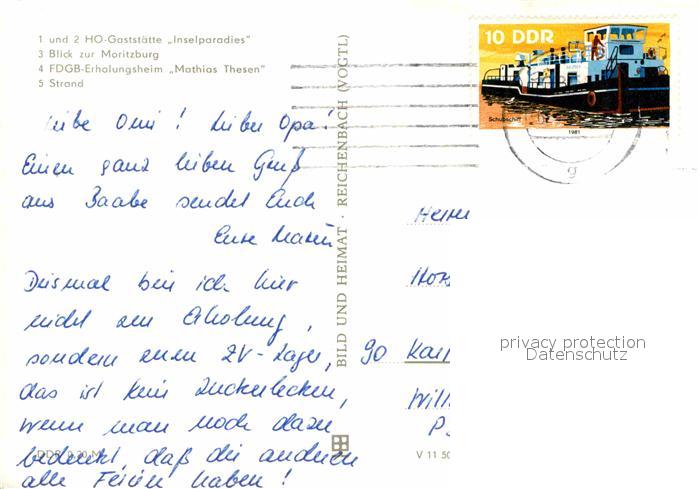 1 und 2 HO-Gaststätte „Inselparadies"
3 Blick zur Moritzburg
4 FDGB-Erholungsheim „Mathias Thesen"
5 Strand
10 DDR
Schubschiff
1981
9
Liebe Omi! Lieber Opa!
Einen ganz lieben Gruß
aus Baabe sendet Euch
Eure
Diesmal bin ich hier
nicht zur Erholung,
sondern zum ZV-Lager,
das ist kein Zuckerlecken,
wenn man noch dazu
bedenkt, daß die anderen
alle Ferien haben!
BILD UND HEIMAT · REICHENBACH (VOGTL)
90
privacy protection
Datenschutz
DDR 0,20 M
V 11 50